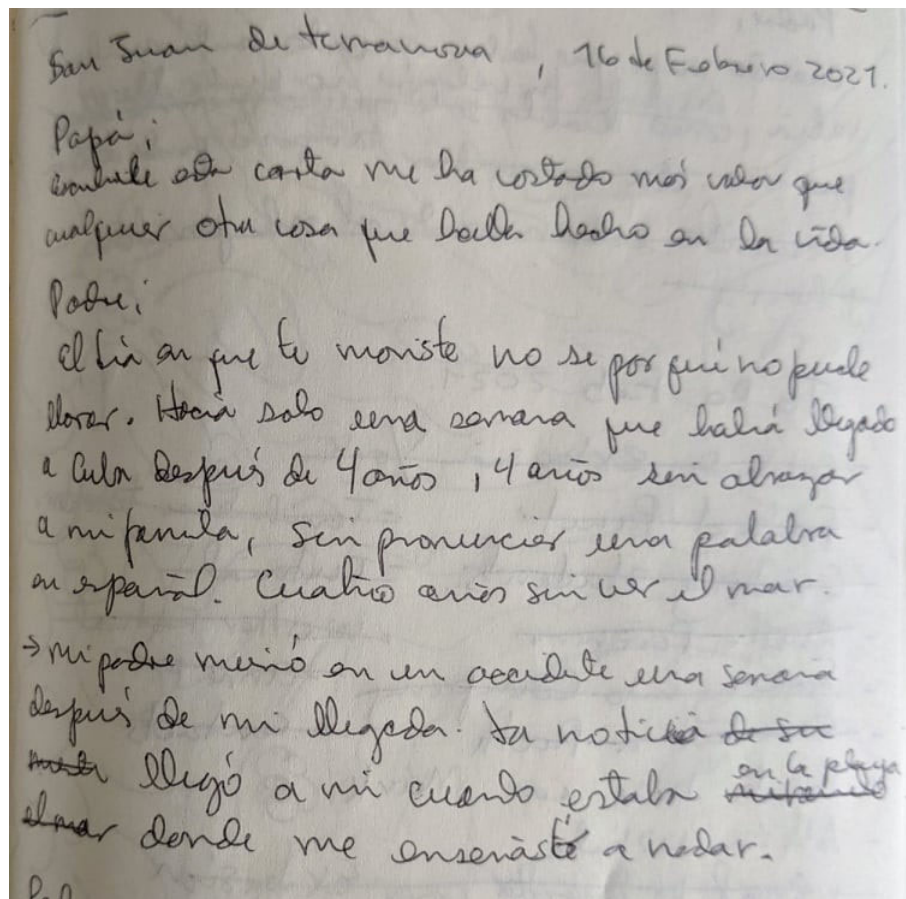 San Juan de terranova, 16 de Febrero 2021.
Papá;
escribirte esta carta me ha costado más valor que
cualquier otra cosa que halla hecho en la vida.
Padre;
el día en que te moriste no se por qué no pude
llorar. Hacía solo una semana que había llegado
a Cuba después de 4 años, 4 años sin abrazar
a mi familia, sin pronunciar una palabra
en español. Cuatro años sin ver el mar.
→ mi padre murió en un accidente una semana
después de mi llegada. La noticia de su
muerte llegó a mi cuando estaba mirando en la playa
el mar donde me enseñaste a nadar.